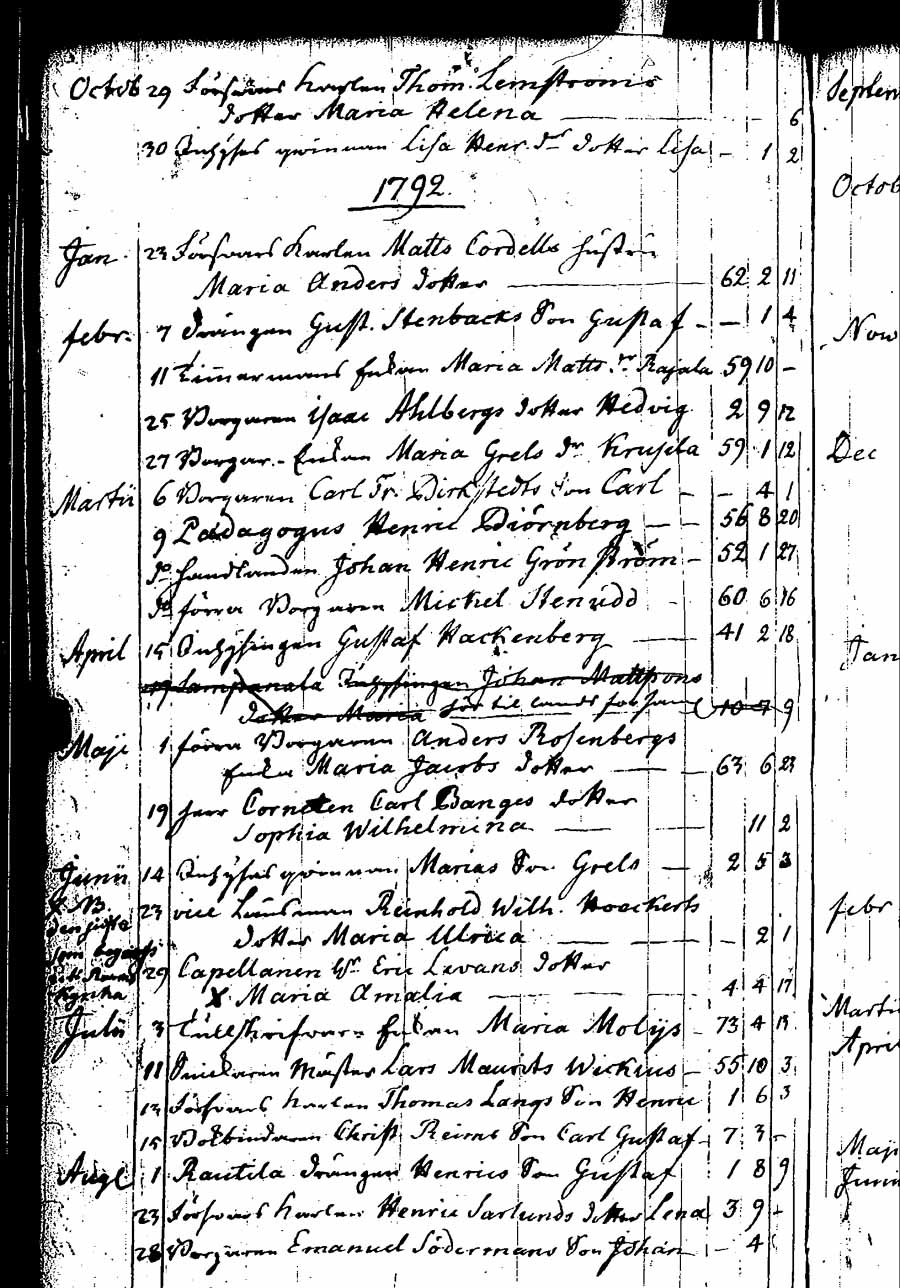 Octob 29 Försvars Karlen Thom. Lemströms
dotter Maria Helena — 6
30 Inhyses qvinnan Lisa Henr. drs dotter Lisa - 1 2
1792.
Jan. 23 Försvars Karlen Matts Cordells hustru
Maria Anders dotter — 62 2 11
febr. 7 Drängen Gust. Stenbacks Son Gustaf - - 1 4
11 Timmermans Enkan Maria Matts dr Rajala 59 10 -
25 Borgaren Isaac Ahlbergs dotter Hedvig 2 9 12
27 Borgar-Enkan Maria Grels dr Krusila 59 1 12
Martii 6 Borgaren Carl Fr. Dirkstedts Son Carl - - 4 1
9 Pædagogus Henric Biörnberg — 56 8 20
do handlanden Johan Henric Grönström - 52 1 27
do förra Borgaren Mickel Stenudd - 60 6 16
April 15 Inhysingen Gustaf Hackenberg — 41 2 18
19 Lampenala Inhysingen Johan Mattsons
dotter Maria för til lands församl 10 7 9
Maji 1 förra Borgaren Anders Rosenbergs
Enka Maria Jacobs dotter — 63 6 23
19 herr Cornetten Carl Banges dotter
Sophia Wilhelmina — 11 2
Junii 14 Inhyses qvinnan Marias Son Grels — 2 5 3
X NB. 23 vice Länsman Reinhold Wilh. Hoeckerts
den sista dotter Maria Ulrica — - 2 1
som begrafs 29 Capellanen Mr Eric Levans dotter
Kyrka X Maria Amalia — 4 4 17
Julii 3 Tullskrifvare Enkan Maria Molijs - 73 4 13
11 Snickaren Mäster Lars Maurits Wickius - 55 10 3
13 Försvars Karlen Thomas Langs Son Henric 1 6 3
15 Bokbindaren Christ Reims Son Carl Gustaf - 7 3 -
Augt 1 Rautila Drängen Henrics Son Gustaf 1 8 9
23 Försvars Karlen Henric Sarlunds dotter Lena 3 9 -
28 Borgaren Emanuel Södermans Son Johan - 4
Septem
Octob
Nov
Dec
Jan
febr
Martii
April
Maji
Junii